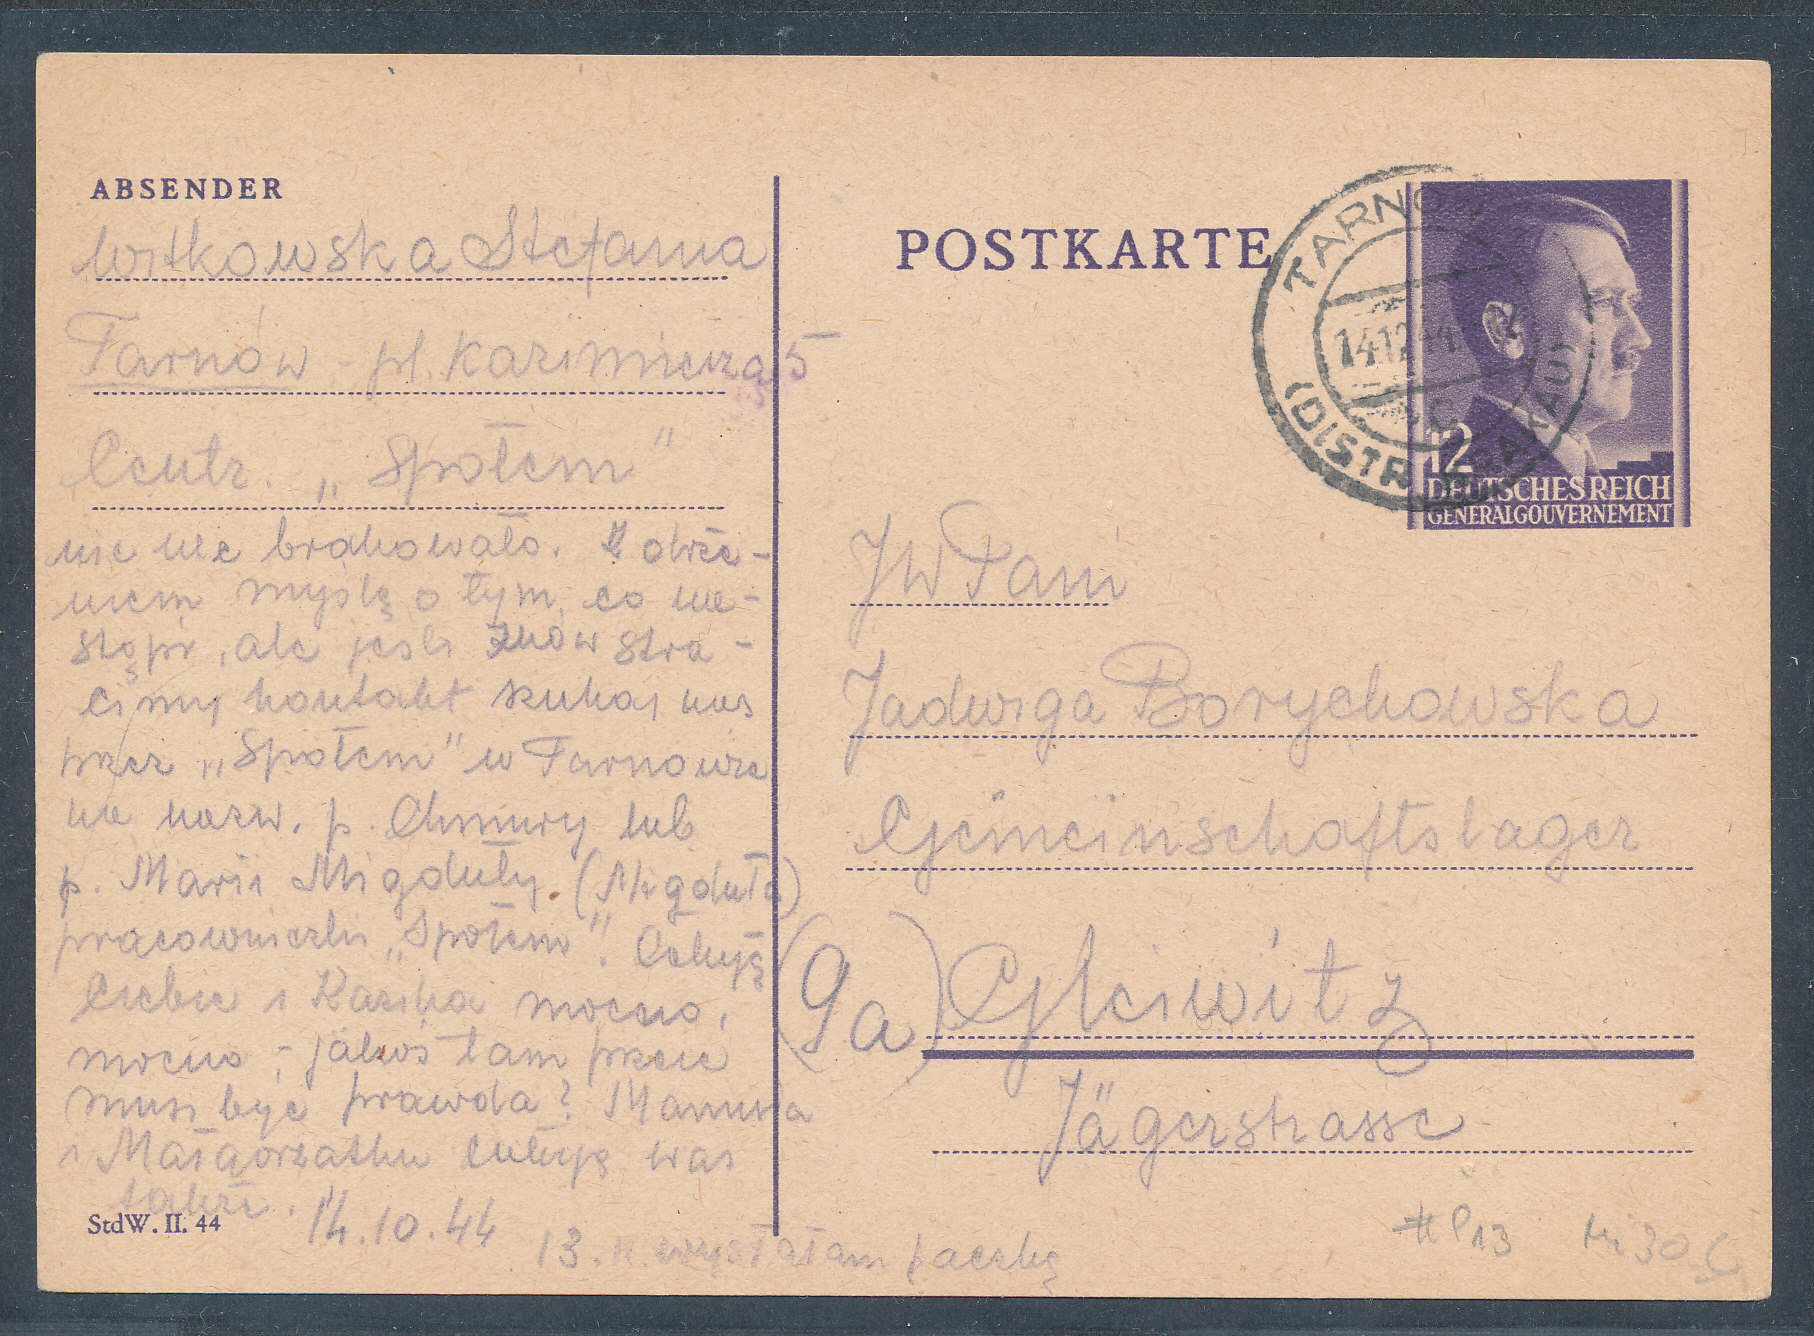 ABSENDER
Witkowska Stefania
Tarnów - pl. Kazimierza 5
Centr. „Społem"
nie nie brakowało. Z
myślę o tym, co na-
stąpi, ale jeśli znów stra-
cimy kontakt szukaj nas
przez „Społem" w Tarnowie
na nazw. p. Chmury lub
p. Marii Migduły (Migduła)
pracowniczki „Społem". Całuję
Ciebie i Kazika mocno,
mocno, - jakoś tam przecie
musi być prawda? Mamusia
i Małgorzatka całują was
także. 14.10.44
13. wysłałam paczkę
StdW. II. 44
POSTKARTE
TARNOW
14.12.44
C
(DISTR. KRAKAU)
12
DEUTSCHES REICH
GENERALGOUVERNEMENT
JW Pani
Jadwiga Borychowska
Gemeinschaftslager
(9a) Gleiwitz
Jägerstrasse
P13 Mi 30